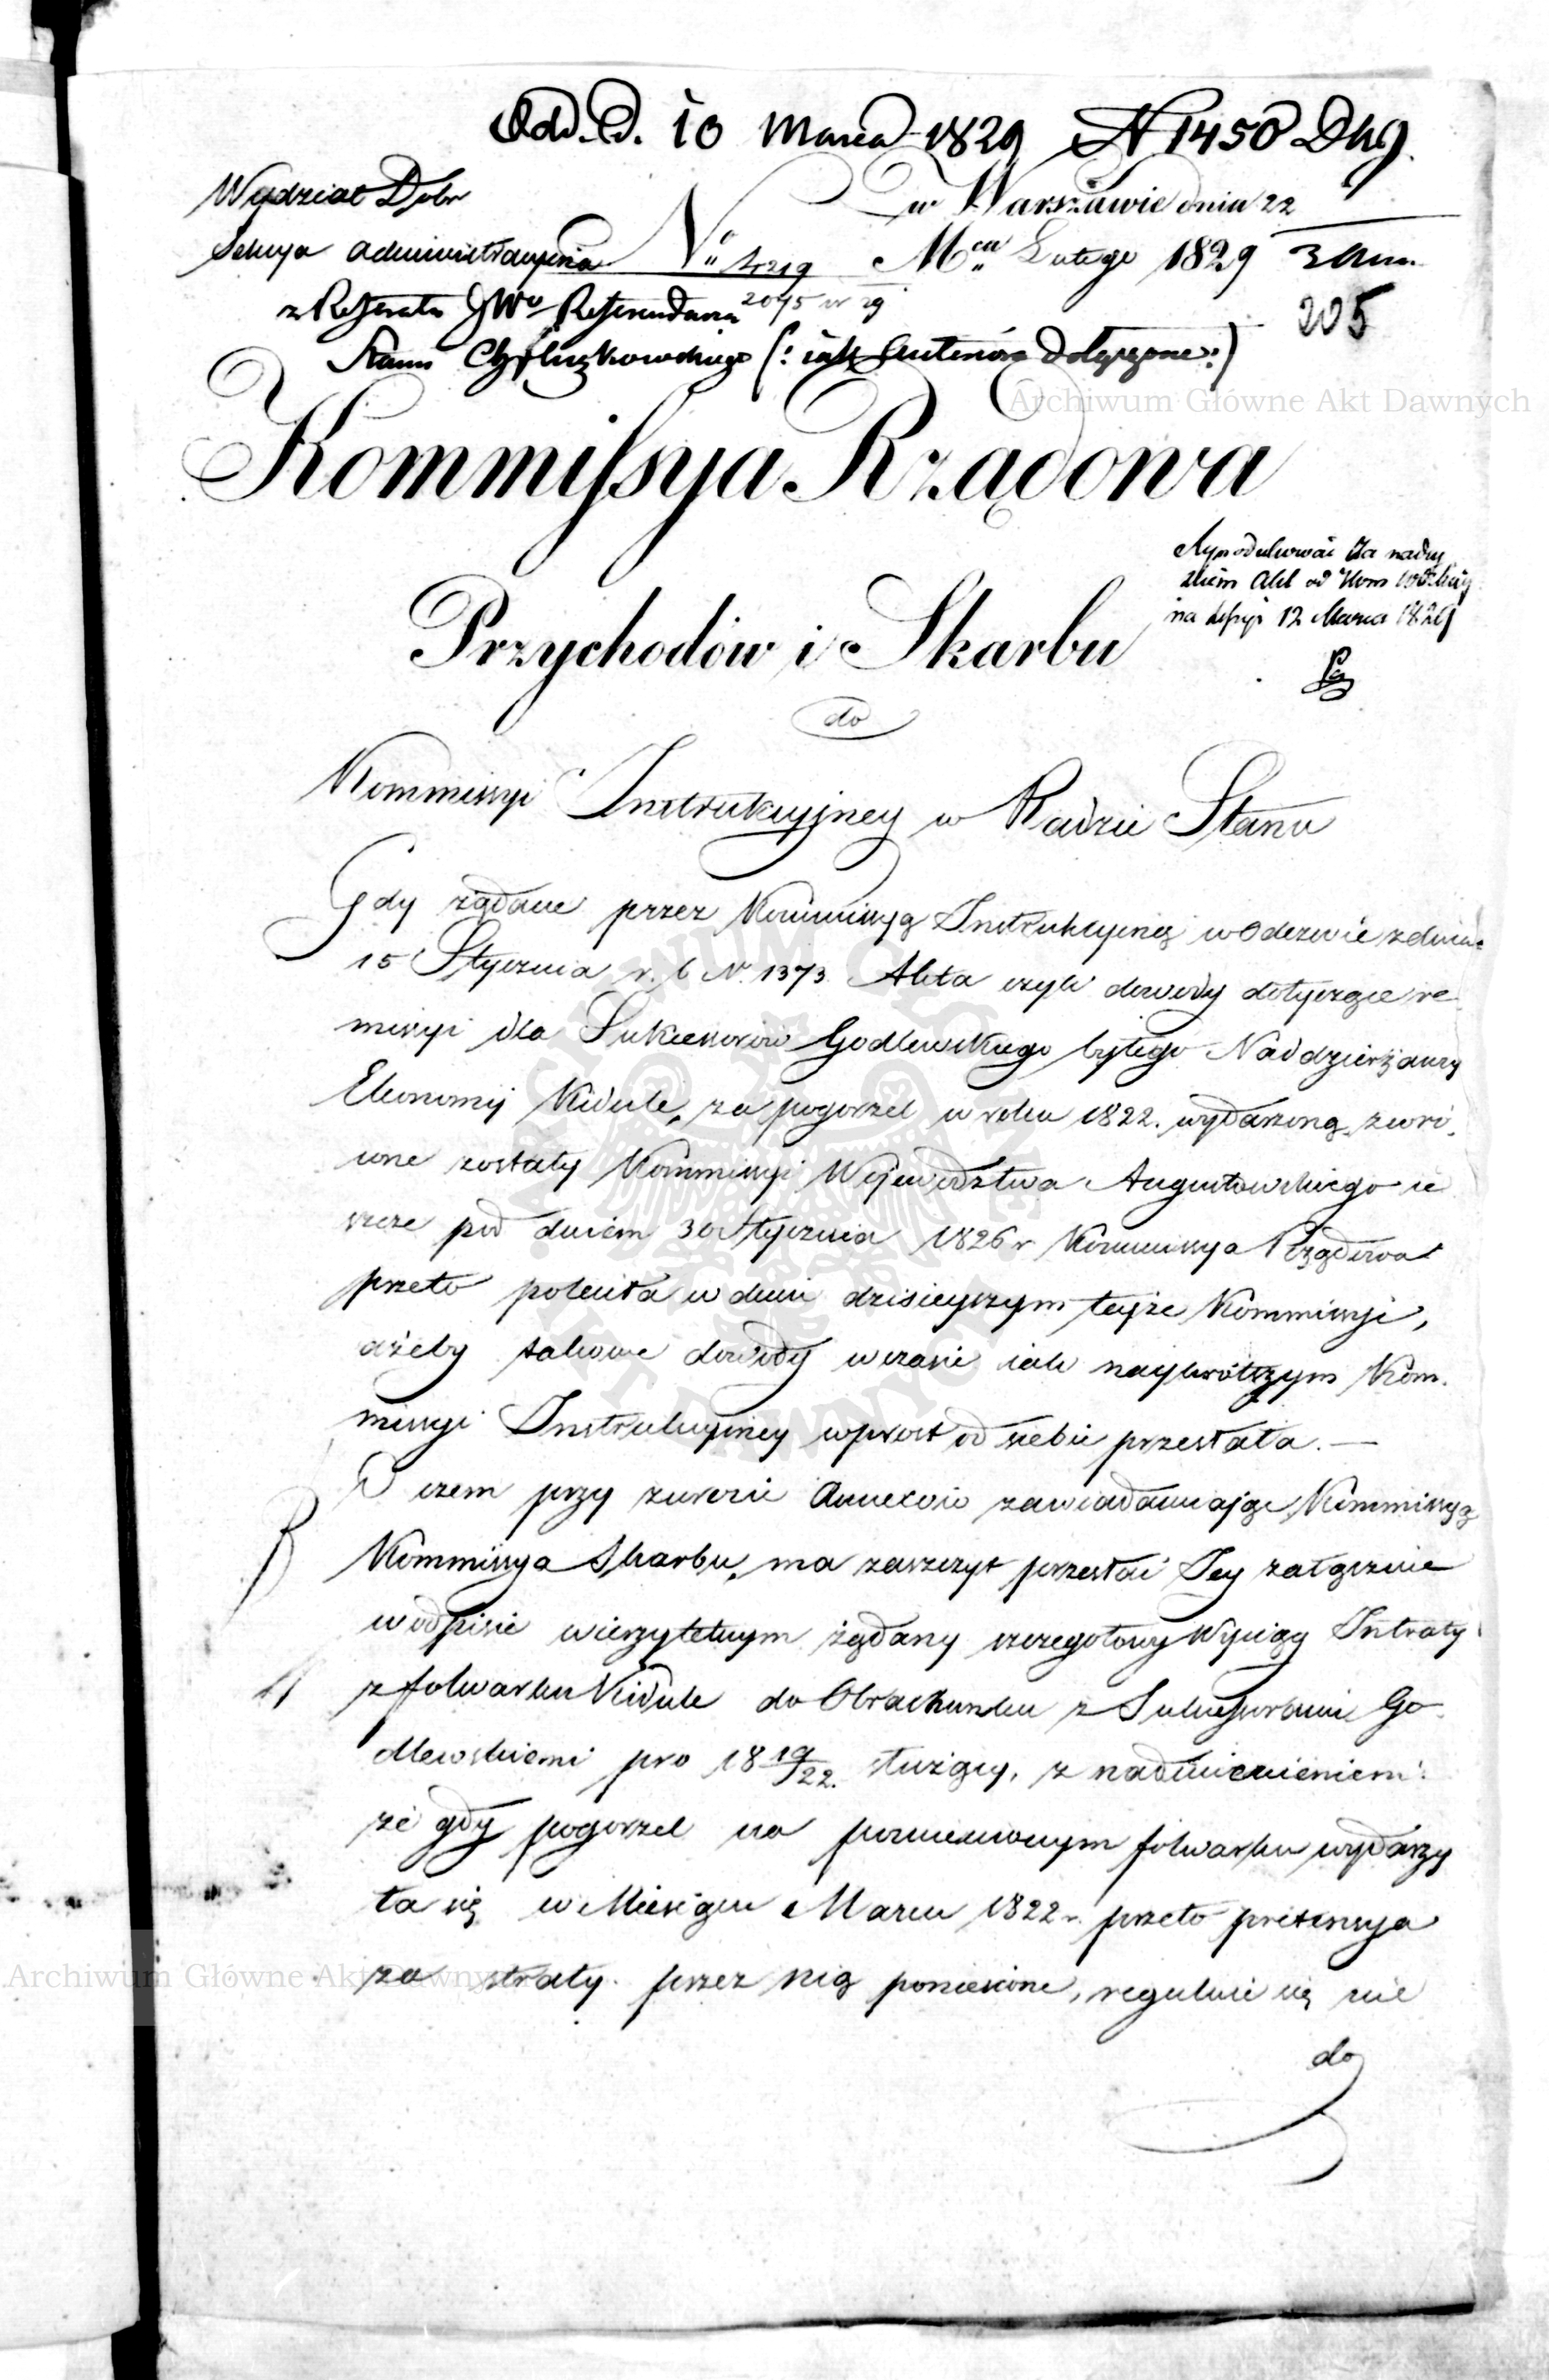 Odd. D. 10 Marca 1829 N 1450 Dug.
Wydział Dobr
w Warszawie dnia 22
Sekcya Administracyina
No
Mca Lutego 1829
2075 w 29
205
z Referatu JWo Referendarza
Stanu
Archiwum Główne Akt Dawnych
Kommissya Rządowa
Przychodów i Skarbu
na 12 Marca 1829
do
Kommissyi Instrukcyjney w Radzie Stanu
Gdy żądane przez Kommissyą Instrukcyiną w Odezwie z dnia
15 Stycznia r. b N. 1373 Akta czyli dowody dotyczące re
missyi dla Sukcessorów Godlewskiego byłego Naddzierżawcy
Ekonomij Kidule, za pogorzel w roku 1822. wydarzoną, zwró
cone zostały Kommissyi Województwa Augustowskiego ie
szcze pod dniem 30 Stycznia 1826 r Kommissya Rządowa
przeto poleciła w dniu dzisieyszym teyże Kommissyi,
ażeby takowe dowody w czasie iak naykrótszym Kom.
missyi Instrukcyiney wprost od siebie przesłała. —
O czem przy zwrocie Annexów zawiadamiaiąc Kommissyą
Kommissya Skarbu, ma zaszczyt przesłać Jey załącznie
w odpisie wierzytelnym żądany szczegółowy Wyciąg Intraty
z folwarku Kidule do Obrachunku z Sukcessorami Go
dlewskiemi pro 18 19/22. służący, z nadmienieniem:
że gdy pogorzel na pomienionym folwarku wydarzy
ła się w Miesiącu Marcu 1822 r. przeto pretensya
za straty przez nią poniesione, reguluie się nie
Archiwum Główne Akt Dawnych
do